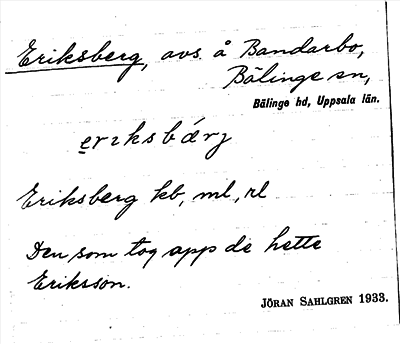 Eriksberg, avs. å Bandarbo,
Bälinge sn,
Bälinge hd, Uppsala län.
e̯rɪksbǽrj
Eriksberg kb, ml, rl
Den, som tog app de hette
Eriksson.
JÖRAN SAHLGREN 1933.